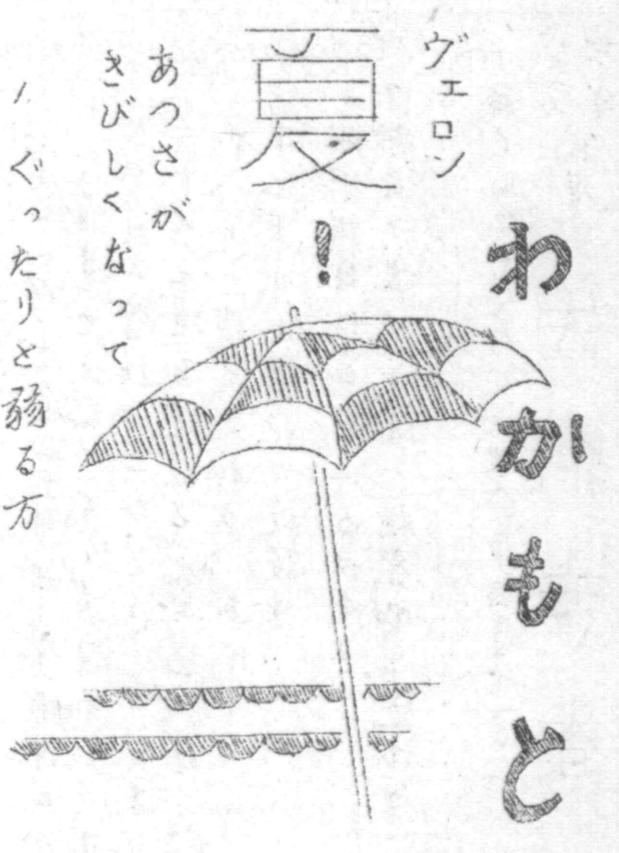 わかもと
ヴェロン
夏!
あつさが
きびしくなって
1. ぐったりと弱る方